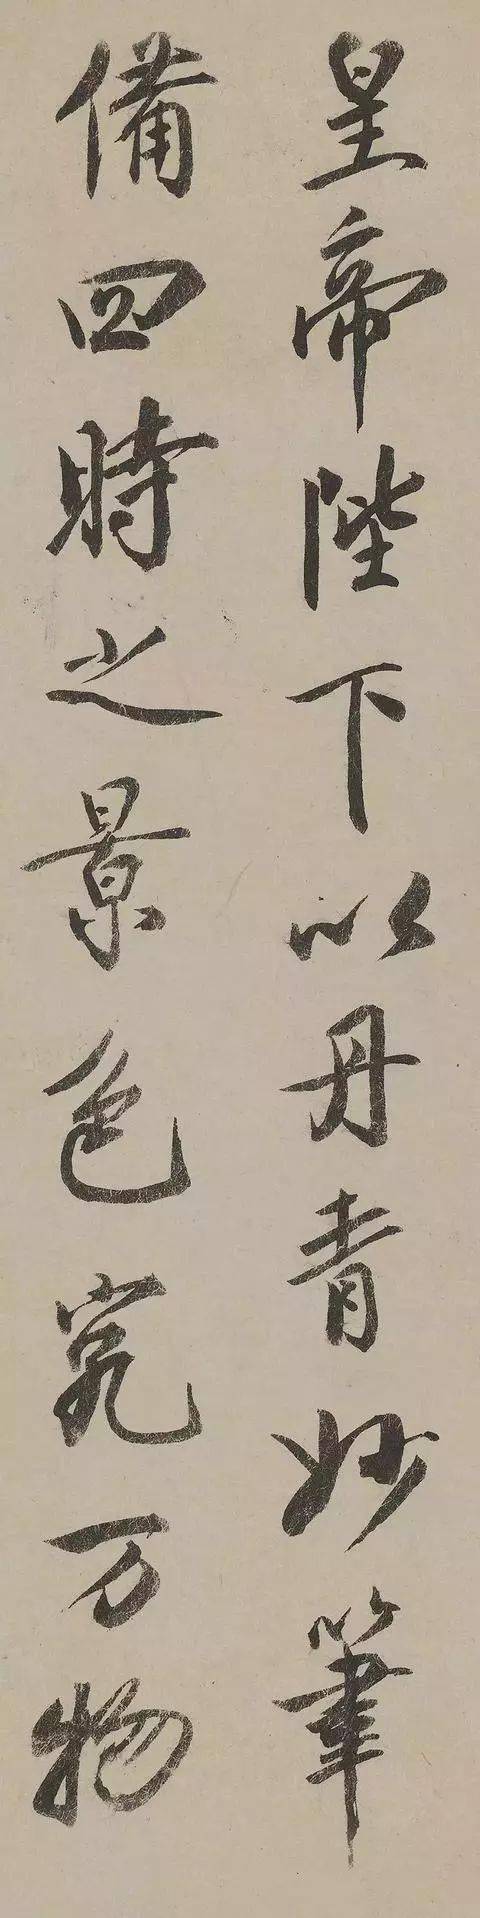 皇帝陛下以丹青妙筆
備四時之景色究万物